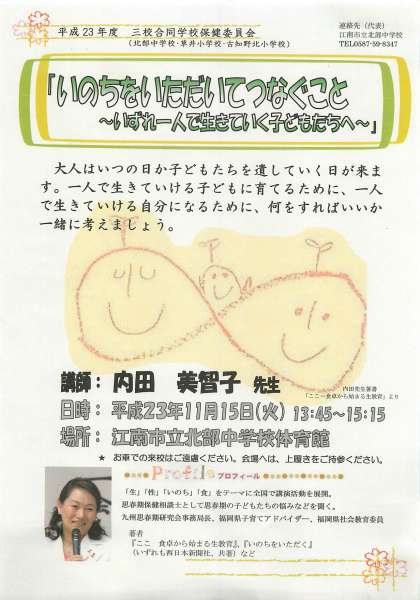 平成23年度　三校合同学校保健委員会
(北部中学校・草井小学校・古知野北小学校)
連絡先（代表）
江南市立北部中学校
TEL0587-59-8347
「いのちをいただいてつなぐこと
～いずれ一人で生きていく子どもたちへ～」
大人はいつの日か子どもたちを遺していく日が来ま
す。一人で生きていける子どもに育てるために、一人
で生きていける自分になるために、何をすればいいか
一緒に考えましょう。
内田先生著書
「ここ－食卓から始まる生教育」より
講師：　内田　美智子　先生
日時：　平成23年11月15日(火) 13:45～15:15
場所：　江南市立北部中学校体育館
★　お車での来校はご遠慮ください。会場へは、上履きをご持参ください。
Profile プロフィール
「生」「性」「いのち」「食」をテーマに全国で講演活動を展開。
思春期保健相談士として思春期の子どもたちの悩みなどを聞く。
九州思春期研究会事務局長、福岡県子育てアドバイザー、福岡県社会教育委員
著者
『ここ　食卓から始まる生教育』、『いのちをいただく』
（いずれも西日本新聞社、共著）など